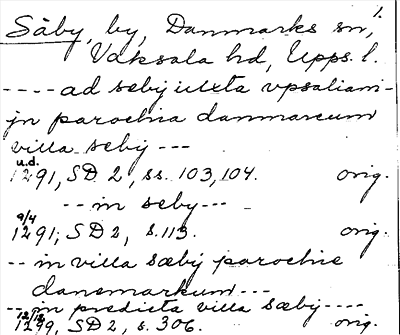 1.
Säby, by, Danmarks sn,
Vaksala hd, Upps. l.
---- ad sebij iuxta vpsaliam -
jn parochia danmarcum
villa sebij ---
u.d.
1291, SD 2, ss. 103, 104. orig.
-- in seby ---
9/4
1291; SD 2, s. 113. orig.
-- in villa sæbij parochie
danemarkum ---
-- jn predicta villa sæby ----
12/12
1299, SD 2, s. 306. orig.